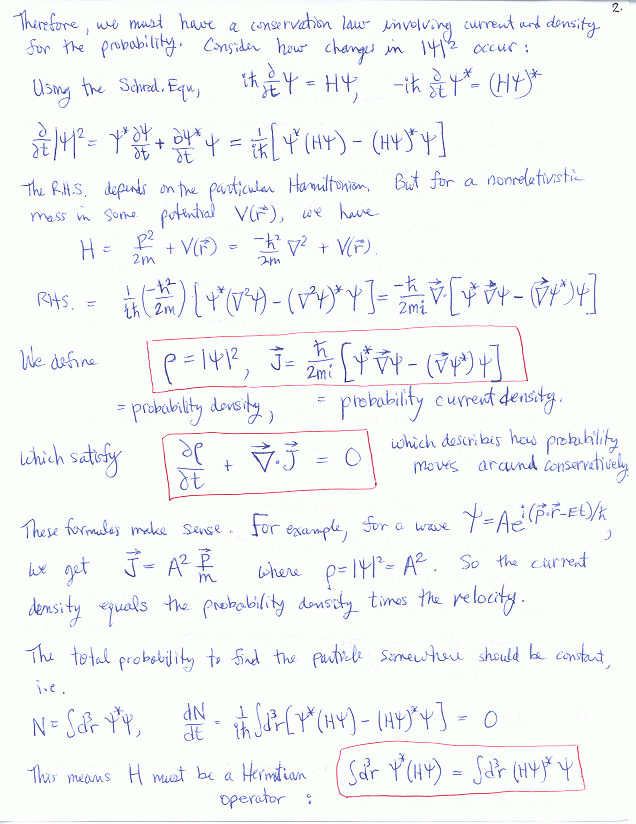 2.
Therefore, we must have a conservation law involving current and density
for the probability. Consider how changes in |ψ|² occur:
Using the Schrod. Equ, iħ ∂/∂t ψ = Hψ, -iħ ∂/∂t ψ* = (Hψ)*
∂/∂t |ψ|² = ψ* ∂ψ/∂t + ∂ψ*/∂t ψ = 1/iħ [ψ*(Hψ) - (Hψ)*ψ]
The R.H.S. depends on the particular Hamiltonian. But for a nonrelativistic
mass in some potential V(r⃗), we have
H = p²/2m + V(r⃗) = -ħ²/2m ∇² + V(r⃗).
RHS. = 1/iħ (-ħ²/2m) [ψ*(∇²ψ) - (∇²ψ)*ψ] = -ħ/2mi ∇⃗·[ψ*∇⃗ψ - (∇⃗ψ*)ψ]
We define ρ = |ψ|², J⃗ = ħ/2mi [ψ*∇⃗ψ - (∇⃗ψ*)ψ]
= probability density, = probability current density.
which satisfy ∂ρ/∂t + ∇⃗·J⃗ = 0 which describes how probability
moves around conservatively.
These formulas make sense. For example, for a wave ψ = Ae^{i(p⃗·r⃗-Et)/ħ},
we get J⃗ = A² p⃗/m where ρ = |ψ|² = A². So the current
density equals the probability density times the velocity.
The total probability to find the particle somewhere should be constant,
i.e.
N = ∫d³r ψ*ψ, dN/dt = 1/iħ ∫d³r [ψ*(Hψ) - (Hψ)*ψ] = 0
This means H must be a Hermitian ∫d³r ψ*(Hψ) = ∫d³r (Hψ)*ψ
operator :